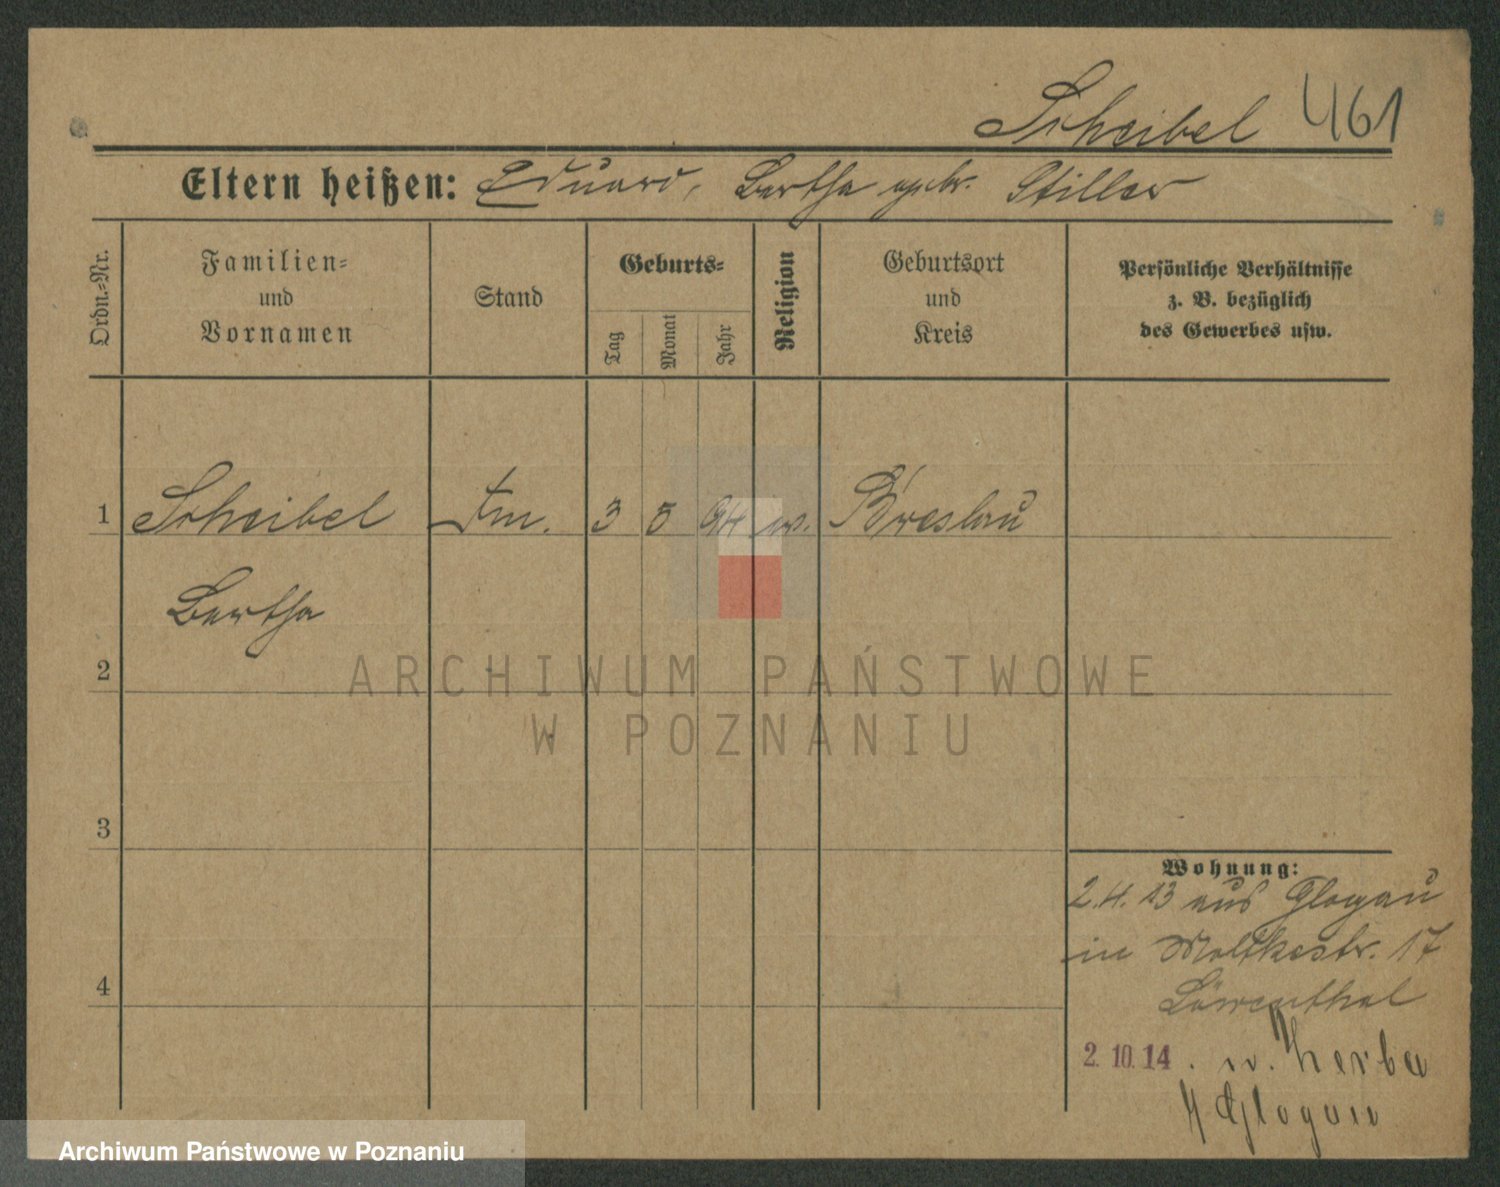 Scheibel 461
Eltern heißen: Eduard, Bertha geb. Stiller
Ordn.-Nr.
Familien-
und
Vornamen
Stand
Geburts-
Tag
Monat
Jahr
Religion
Geburtsort
und
Kreis
Persönliche Verhältnisse
z. B. bezüglich
des Gewerbes usw.
1 Scheibel 3 5 94 Breslau
Bertha
2
3
4
Wohnung:
2.4.13 aus Glogau
in Moltkestr. 17
Löwenthal
2.10.14
Glogau
ARCHIWUM PAŃSTWOWE
W POZNANIU
Archiwum Państwowe w Poznaniu